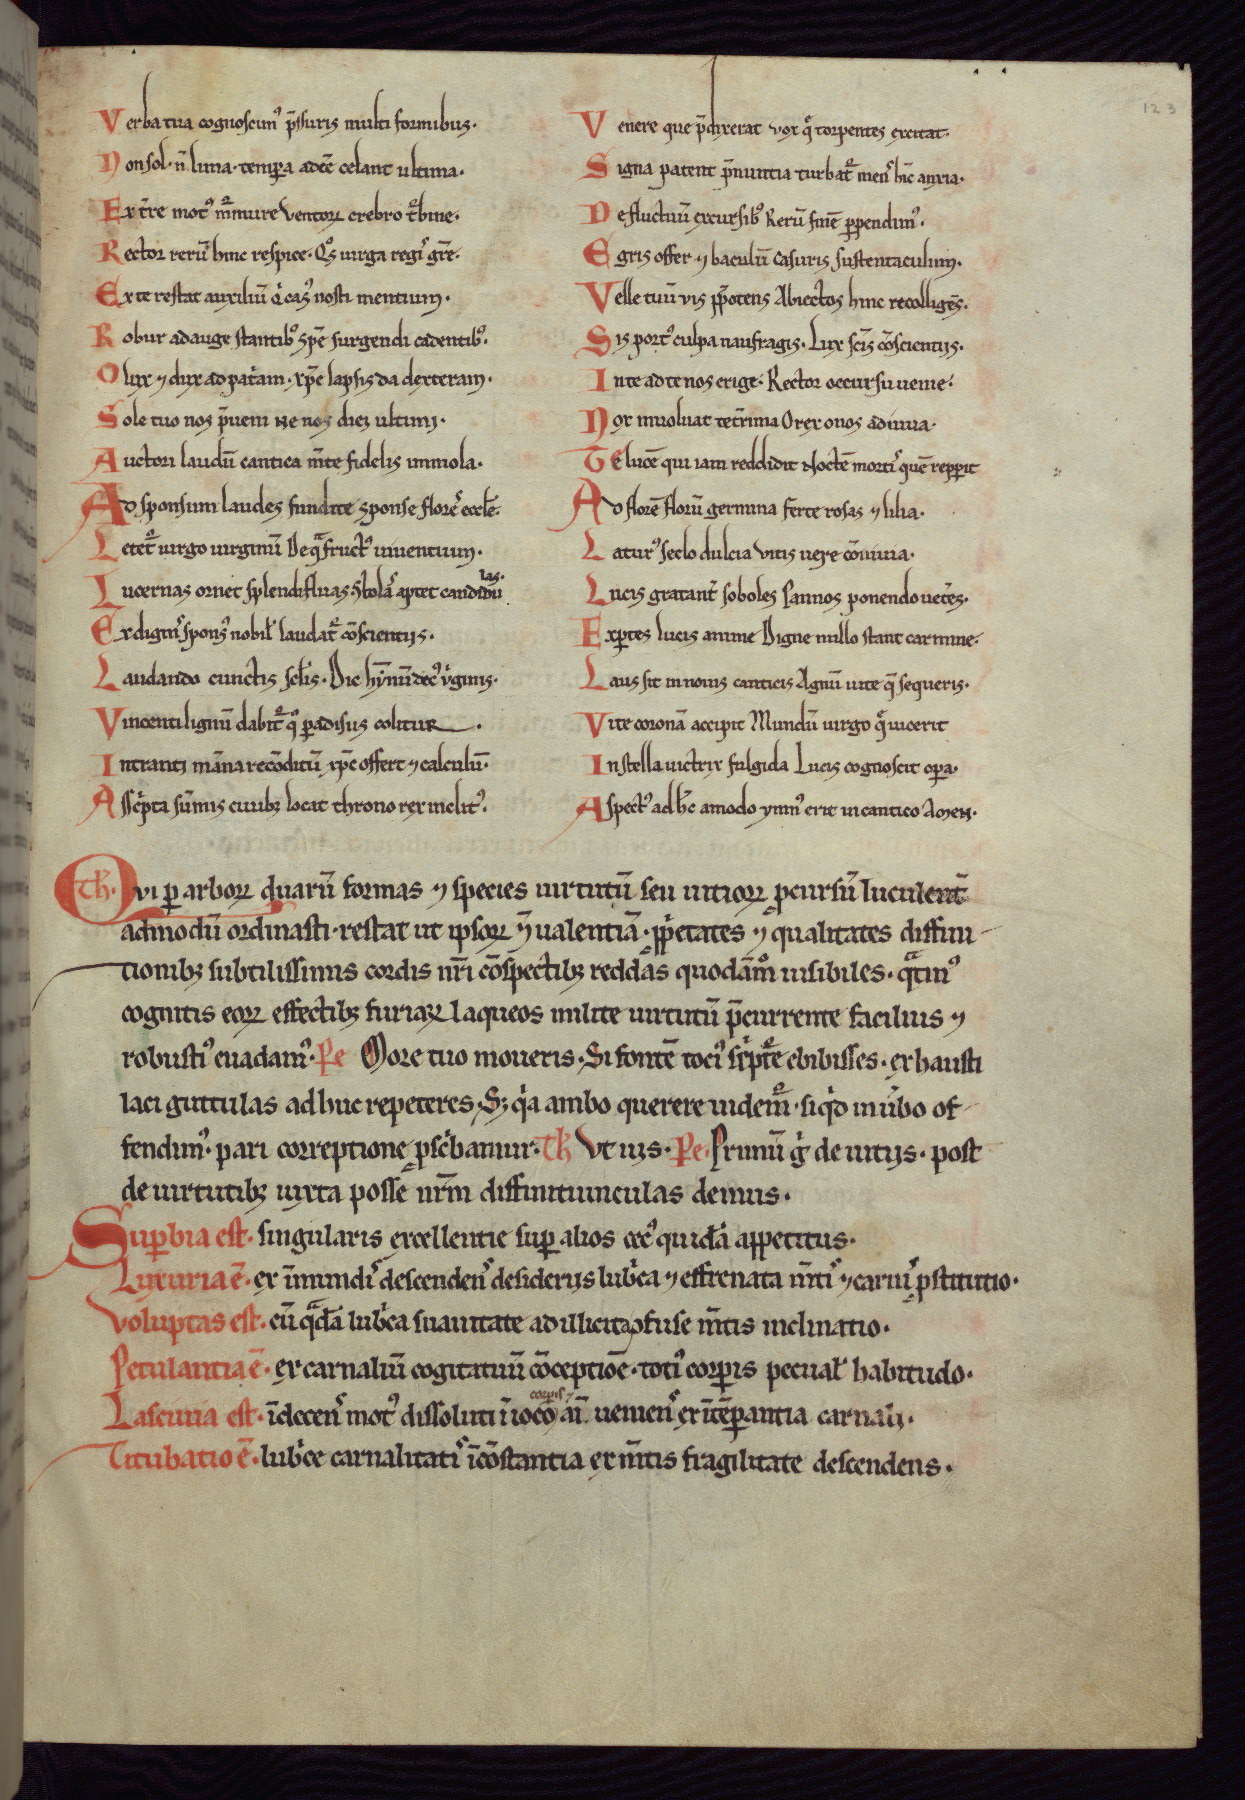 123
Verba tua cognoscim᷒ p̄ssuris multi formibus·
Non sol· n̄ luna· tempora adeē celant ultima·
Ex t̄re mot᷒ m̄mure ventoꝝ crebro t̄bine·
Rector rerū hinc respice· Q᷒s uirga regis gr̄e·
Ex te restat auxiliū q̇ cas᷒ nosti mentium·
Robur adauge stantib᷒ spē surgendi cadentib᷒·
O lux ⁊ dux ad patriam· xp̄e lapsis da dexteram·
Sole tuo nos p̄ueni Ne nos dies ultimi·
Auctori laudū cantica m̄te fidelis immola·
Ad sponsum laudes fundite sponse flores eccl̄e·
Letet᷒ uirgo uirginū De q̄ fruct᷒ uiuentium·
Lucernas ornet splendifluas Stolas aptet candidulas·
Ex dignis spons᷒ nobil᷒ laudat᷒ cōscientijs·
Laudando cunctis sc̄lis· Dic hȳnū dec᷒ v̇ginis·
Vincenti lignū dabit᷒ q᷒ ꝑadisus colitur·
Intranti māna recōditū xp̄c offert ⁊ calculū·
Asċpta sūmis ciuibꝫ locat throno rex inclit᷒·
Venere que p̄dixerat vox q̄ torpentes excitat·
Signa patent p̄nuntia turbat᷒ mens hēc anxia·
De fluctuū excursib᷒ Rerū finē ꝑpendim᷒·
Egris offer ⁊ baculū Casuris sustentaculum·
Velle tuū vis p̄potens Abiectos hinc recolligens·
Sis port᷒ culpa naufragis· Lux sc̄is cōscientijs·
In te ad te nos erige· Rector occursu ueni e·
Nox inuoluat tet̄rima O rex o nos adiuua·
Te lucē qui iam reddidit Noctē mortis quē repperit
Ad florē florū germina ferte rosas ⁊ lilia·
Latur᷒ seclo dulcia vitis uere cōuiuia·
Lucis gratant᷒ soboles Pannos ponendo uet̄es·
Expertes lucis anime Digne nullo stant carmine·
Laus sit in nouis canticis Agnū uite q̄ sequeris·
Vite coronā accipit Mundū uirgo q̄ uicerit
In stella uictrix fulgida Lucis cognoscit opera·
Aspect᷒ ad hc̄ amodo ymn᷒ erit in cantico Amen·
Th· Qvi ꝑ arborꝝ duarū formas ⁊ species uirtutū seu uitioꝝ ꝑcursū luculent̄
admodū ordinasti· restat ut ipsoꝝ ⁊ ualentiā· ꝓp̄etates ⁊ qualitates diffini
tionibꝫ subtilissimis cordis nr̄i cōspectibꝫ reddas quodāmo uisibiles· q̄tin᷒
cognitis eoꝝ effectibꝫ furiaꝝ laqueos milite uirtutū p̄currente facilius ⁊
robusti᷒ euadam᷒· Pe More tuo moueris· Si fontē toci᷒ sċpt᷒e ebibisses· exhausti
laci guttulas adhuc repeteres· Sꝫ q̇a ambo querere uidem᷒· siq̇d in u̇bo of
fendim᷒· pari correptione ꝓsċbamur· Th Vt iijs· Pe· Primū ġ de uitijs· post
de uirtutibꝫ iuxta posse nr̄m diffinitiunculas demus·
Supbia est· singularis excellentie suꝑ alios cec᷒ quidā appetitus·
Luxuria ē· ex īmundis descendens desiderijs luḃca ⁊ effrenata m̄tis ⁊ carnis ꝓstitutio·
Voluptas est· cū q̄dā luḃca suauitate ad illicita ꝓfuse m̄tis inclinatio·
Petulantia ē· ex carnaliū cogitatuū cōceptiōe· toti᷒ corporis pecual᷒ habitudo·
Lasciuia est· īdecens mot᷒ dissoluti ī ioco corpis ⁊ aī ueniens ex ītēꝑantia carnali·
Titubatio ē· luḃce carnalitatis īcōstantia ex m̄tis fragilitate descendens·